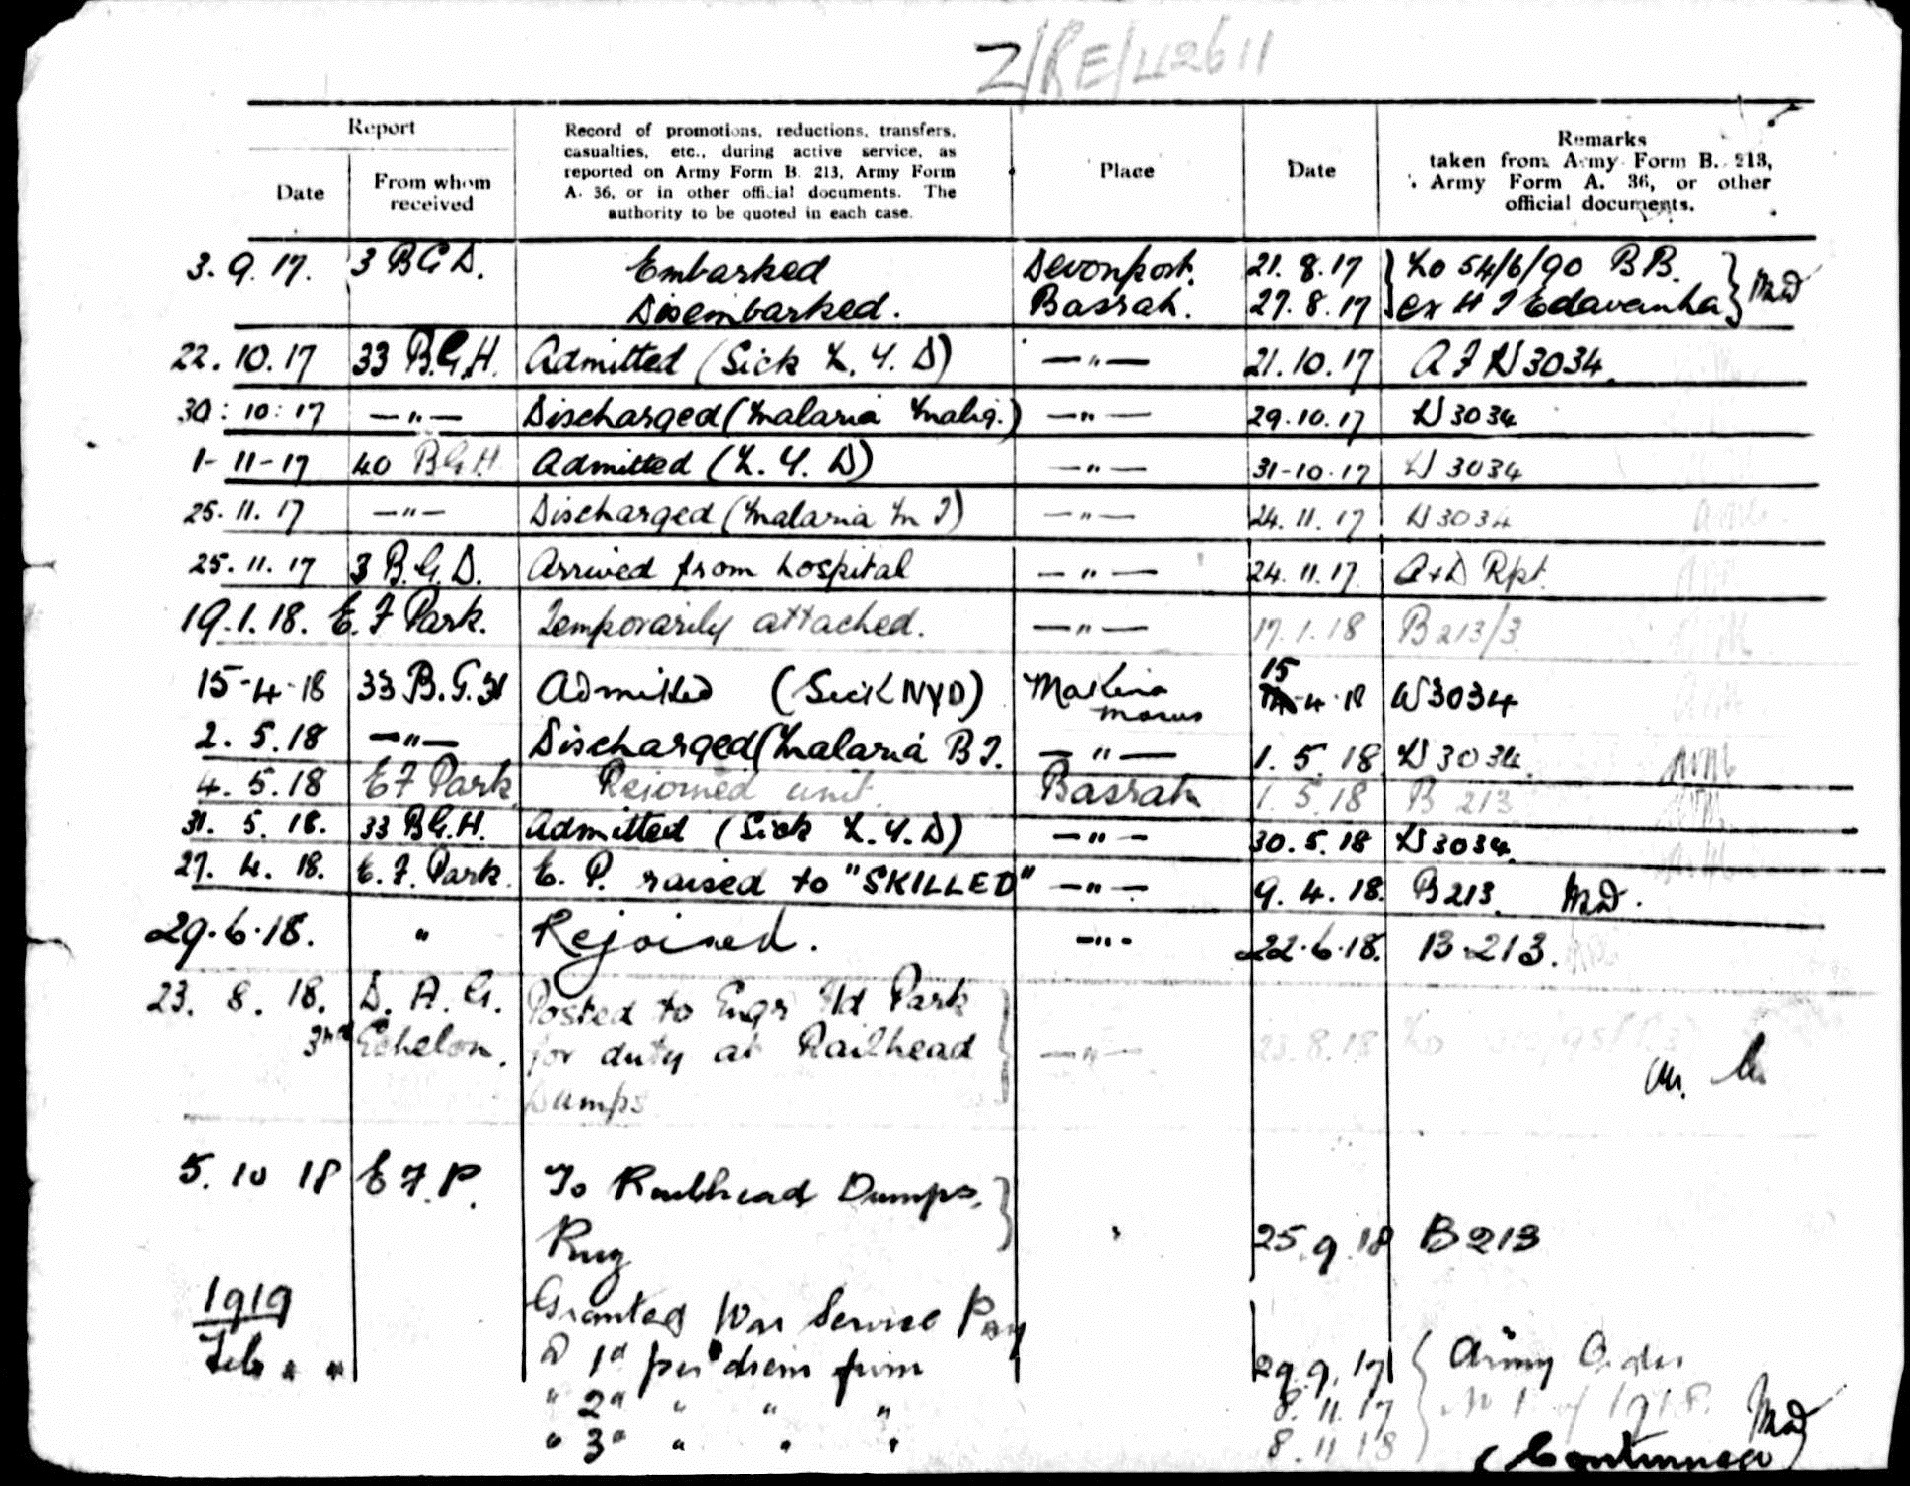 Z/RE/42611
Report
Date
From whom received
Record of promotions, reductions, transfers, casualties, etc., during active service, as reported on Army Form B. 213, Army Form A. 36, or in other official documents. The authority to be quoted in each case.
Place
Date
Remarks taken from Army Form B. 213, Army Form A. 36, or other official documents.
3. 9. 17. 3 B G D. Embarked Devonport. 21. 8. 17 54/6/90 B B.
Disembarked. Basrah. 27. 8. 17 ex H T Edavanha
22. 10. 17 33 B.G.H. Admitted (Sick N. Y. D) —"— 21. 10. 17 A F W 3034.
30: 10: 17 —"— Discharged (Malaria Malig.) —"— 29. 10. 17 W 3034
1-11-17 40 B G H Admitted (N. Y. D) —"— 31-10-17 W 3034
25. 11. 17 —"— Discharged (Malaria M T) —"— 24. 11. 17 W 3034
25. 11. 17 3 B. G. D. Arrived from hospital —"— 24. 11. 17 A & D Rpt.
19. 1. 18. E. F Park. Temporarily attached. —"— 17. 1. 18 B 213/3
15-4-18 33 B. G. H Admitted (Sick NYD) Makina Marus 15 4 18 W 3034
2. 5. 18 —"— Discharged (Malaria B T. —"— 1. 5. 18 W 3034.
4. 5. 18 E F Park Rejoined unit. Basrah 1. 5. 18 B 213
31. 5. 18. 33 B G. H. Admitted (Sick N. Y. D) —"— 30. 5. 18 W 3034.
27. 4. 18. E. F. Park. E. P. raised to "SKILLED" —"— 9. 4. 18. B 213.
29. 6. 18. " Rejoined. —"— 22. 6. 18. B. 213.
23. 8. 18. D. A. G. Posted to Engr Fd Park
3rd Echelon. for duty at Railhead —"— 23. 8. 18
Dumps
5. 10 18 E F. P. To Railhead Dumps,
25. 9. 18 B 213
1919 Granted War Service Pay
Feb " " @ 1d per diem from 29. 9. 17 Army Order
" 2d " " " 8. 11. 17 No 1 of 1918.
" 3d " " " 8 11 18
(Continued)